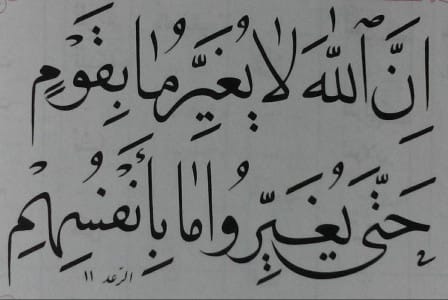 إِنَّ ٱللَّهَ لَا يُغَيِّرُ مَا بِقَوْمٍ
حَتَّى يُغَيِّرُوا مَا بِأَنْفُسِهِمْ
الرعد ١١